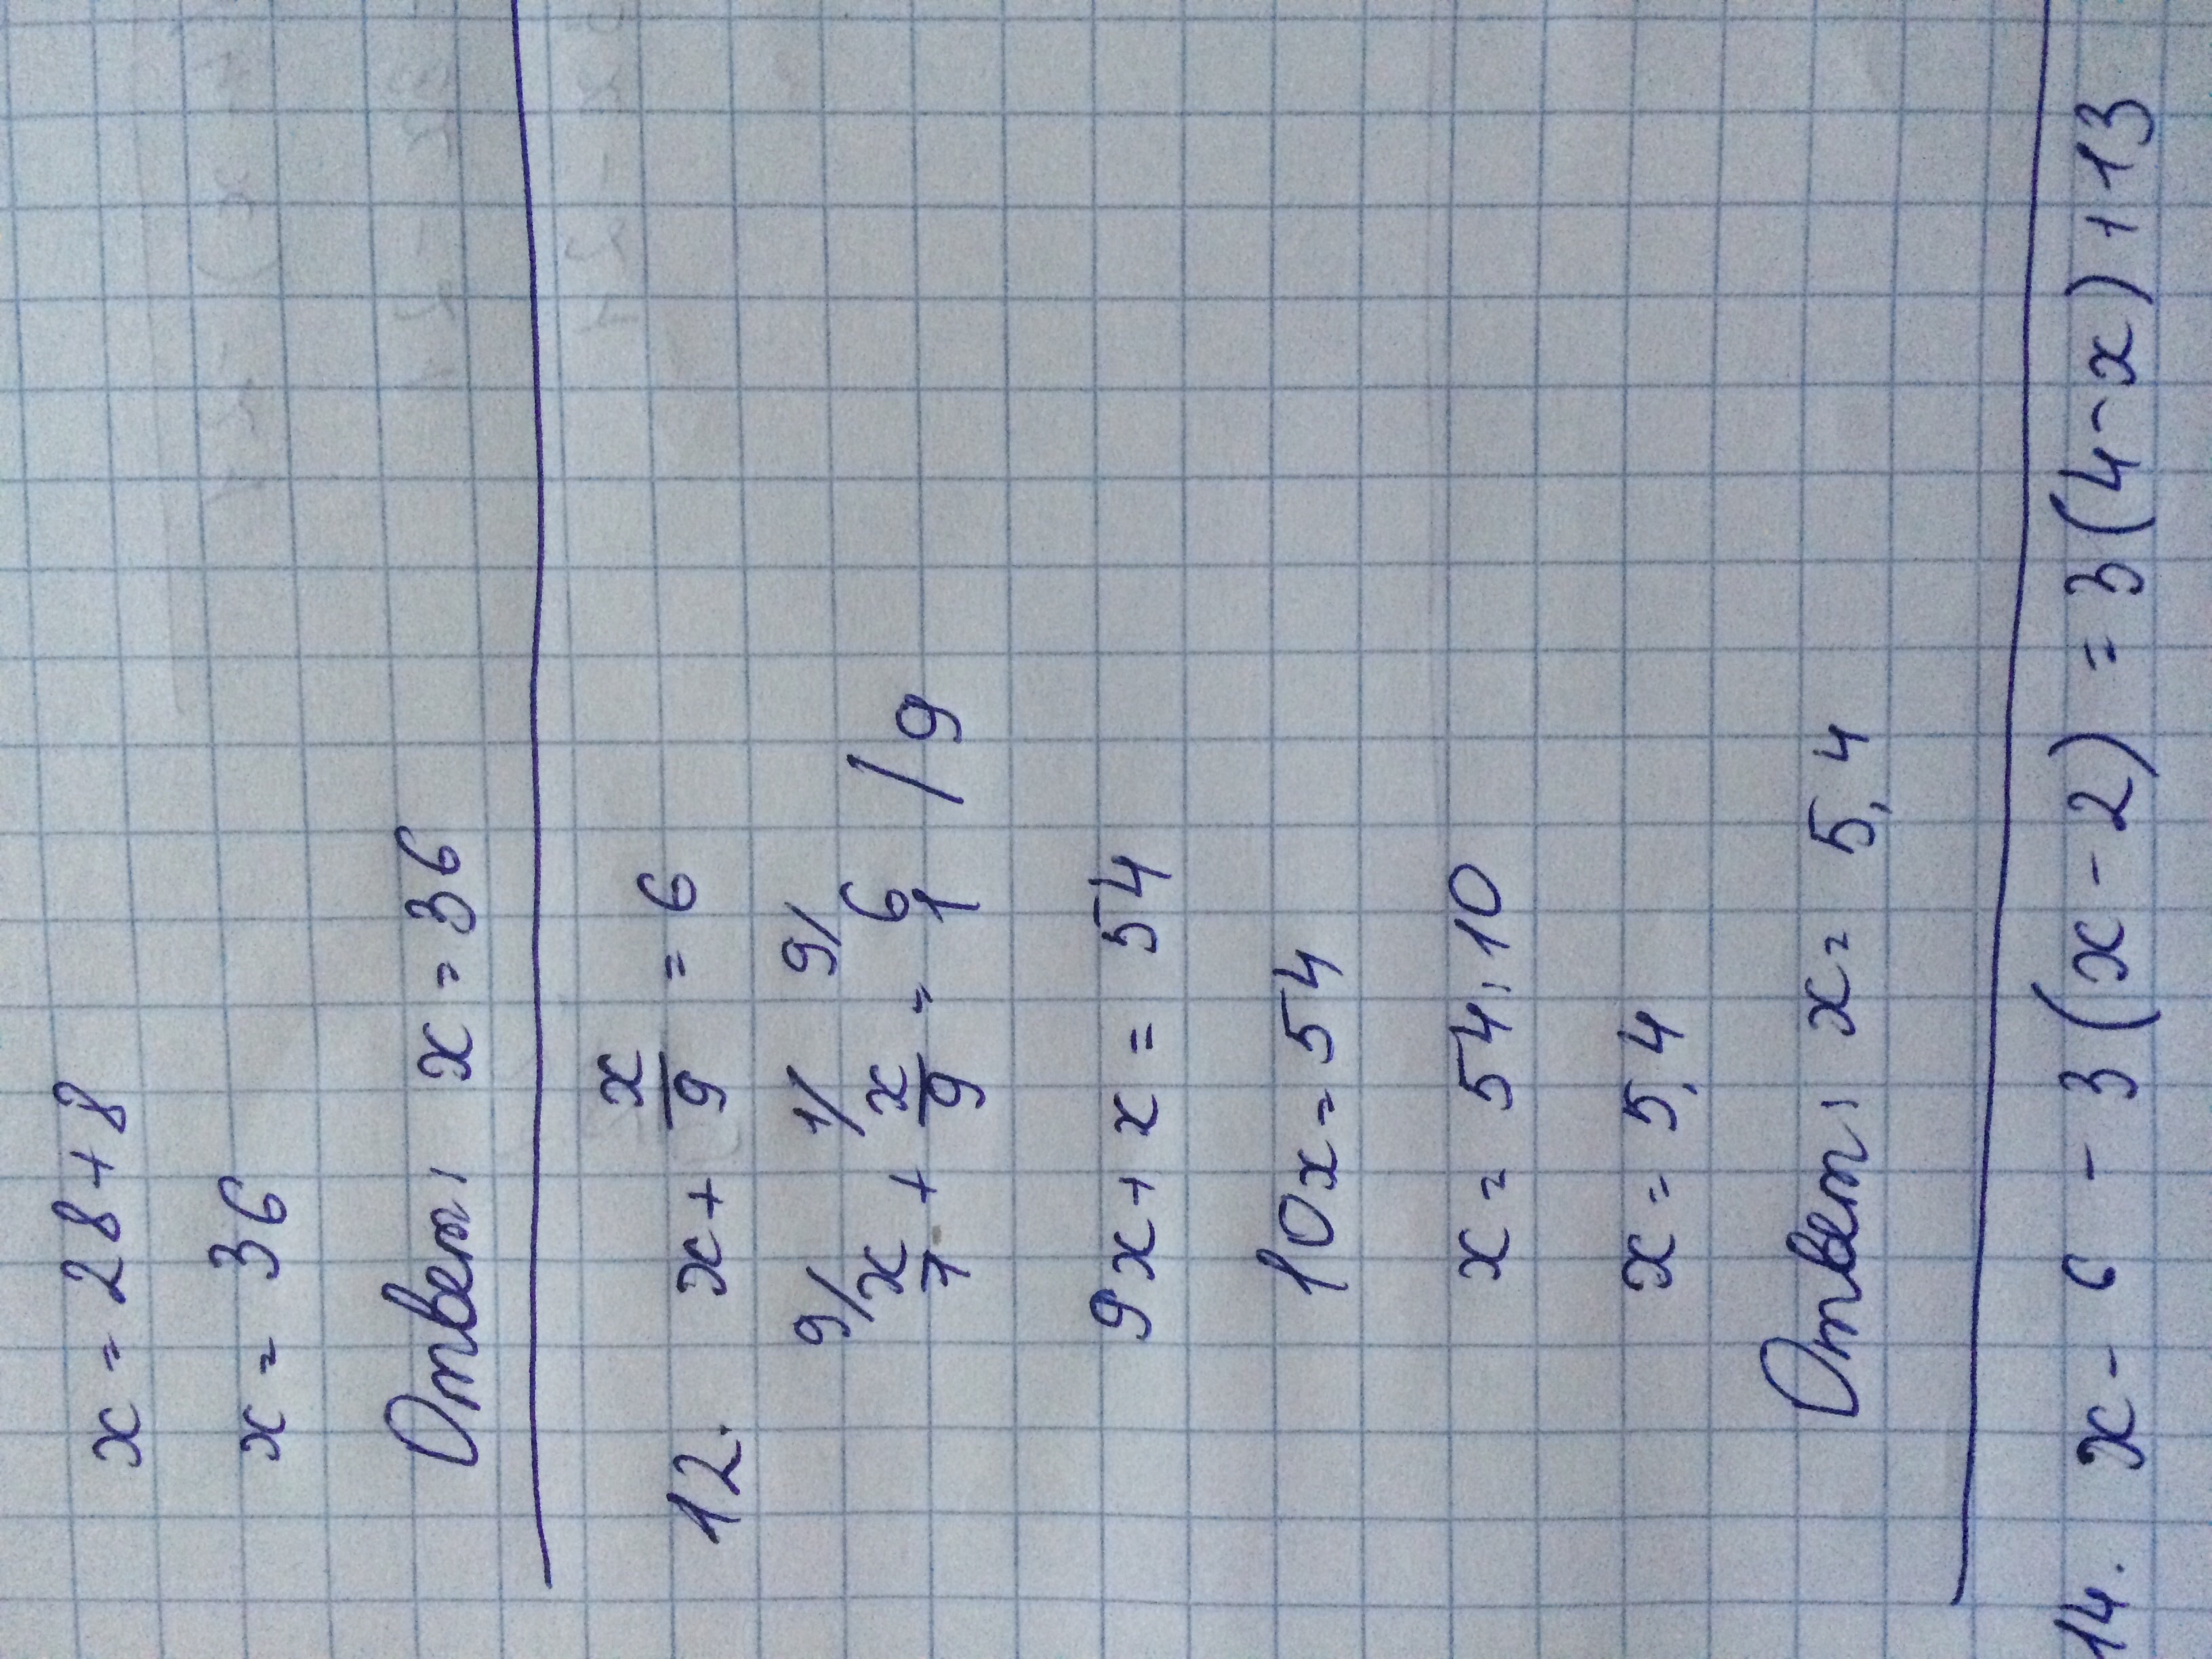 x = 28+8
x = 36
Ответ: x = 36
12. x + x/9 = 6
9/ 1/ 9/
x/1 + x/9 = 6/1 / 9
9x + x = 54
10x = 54
x = 54:10
x = 5,4
Ответ: x = 5,4
14. x - 6 - 3(x-2) = 3(4-x)+13